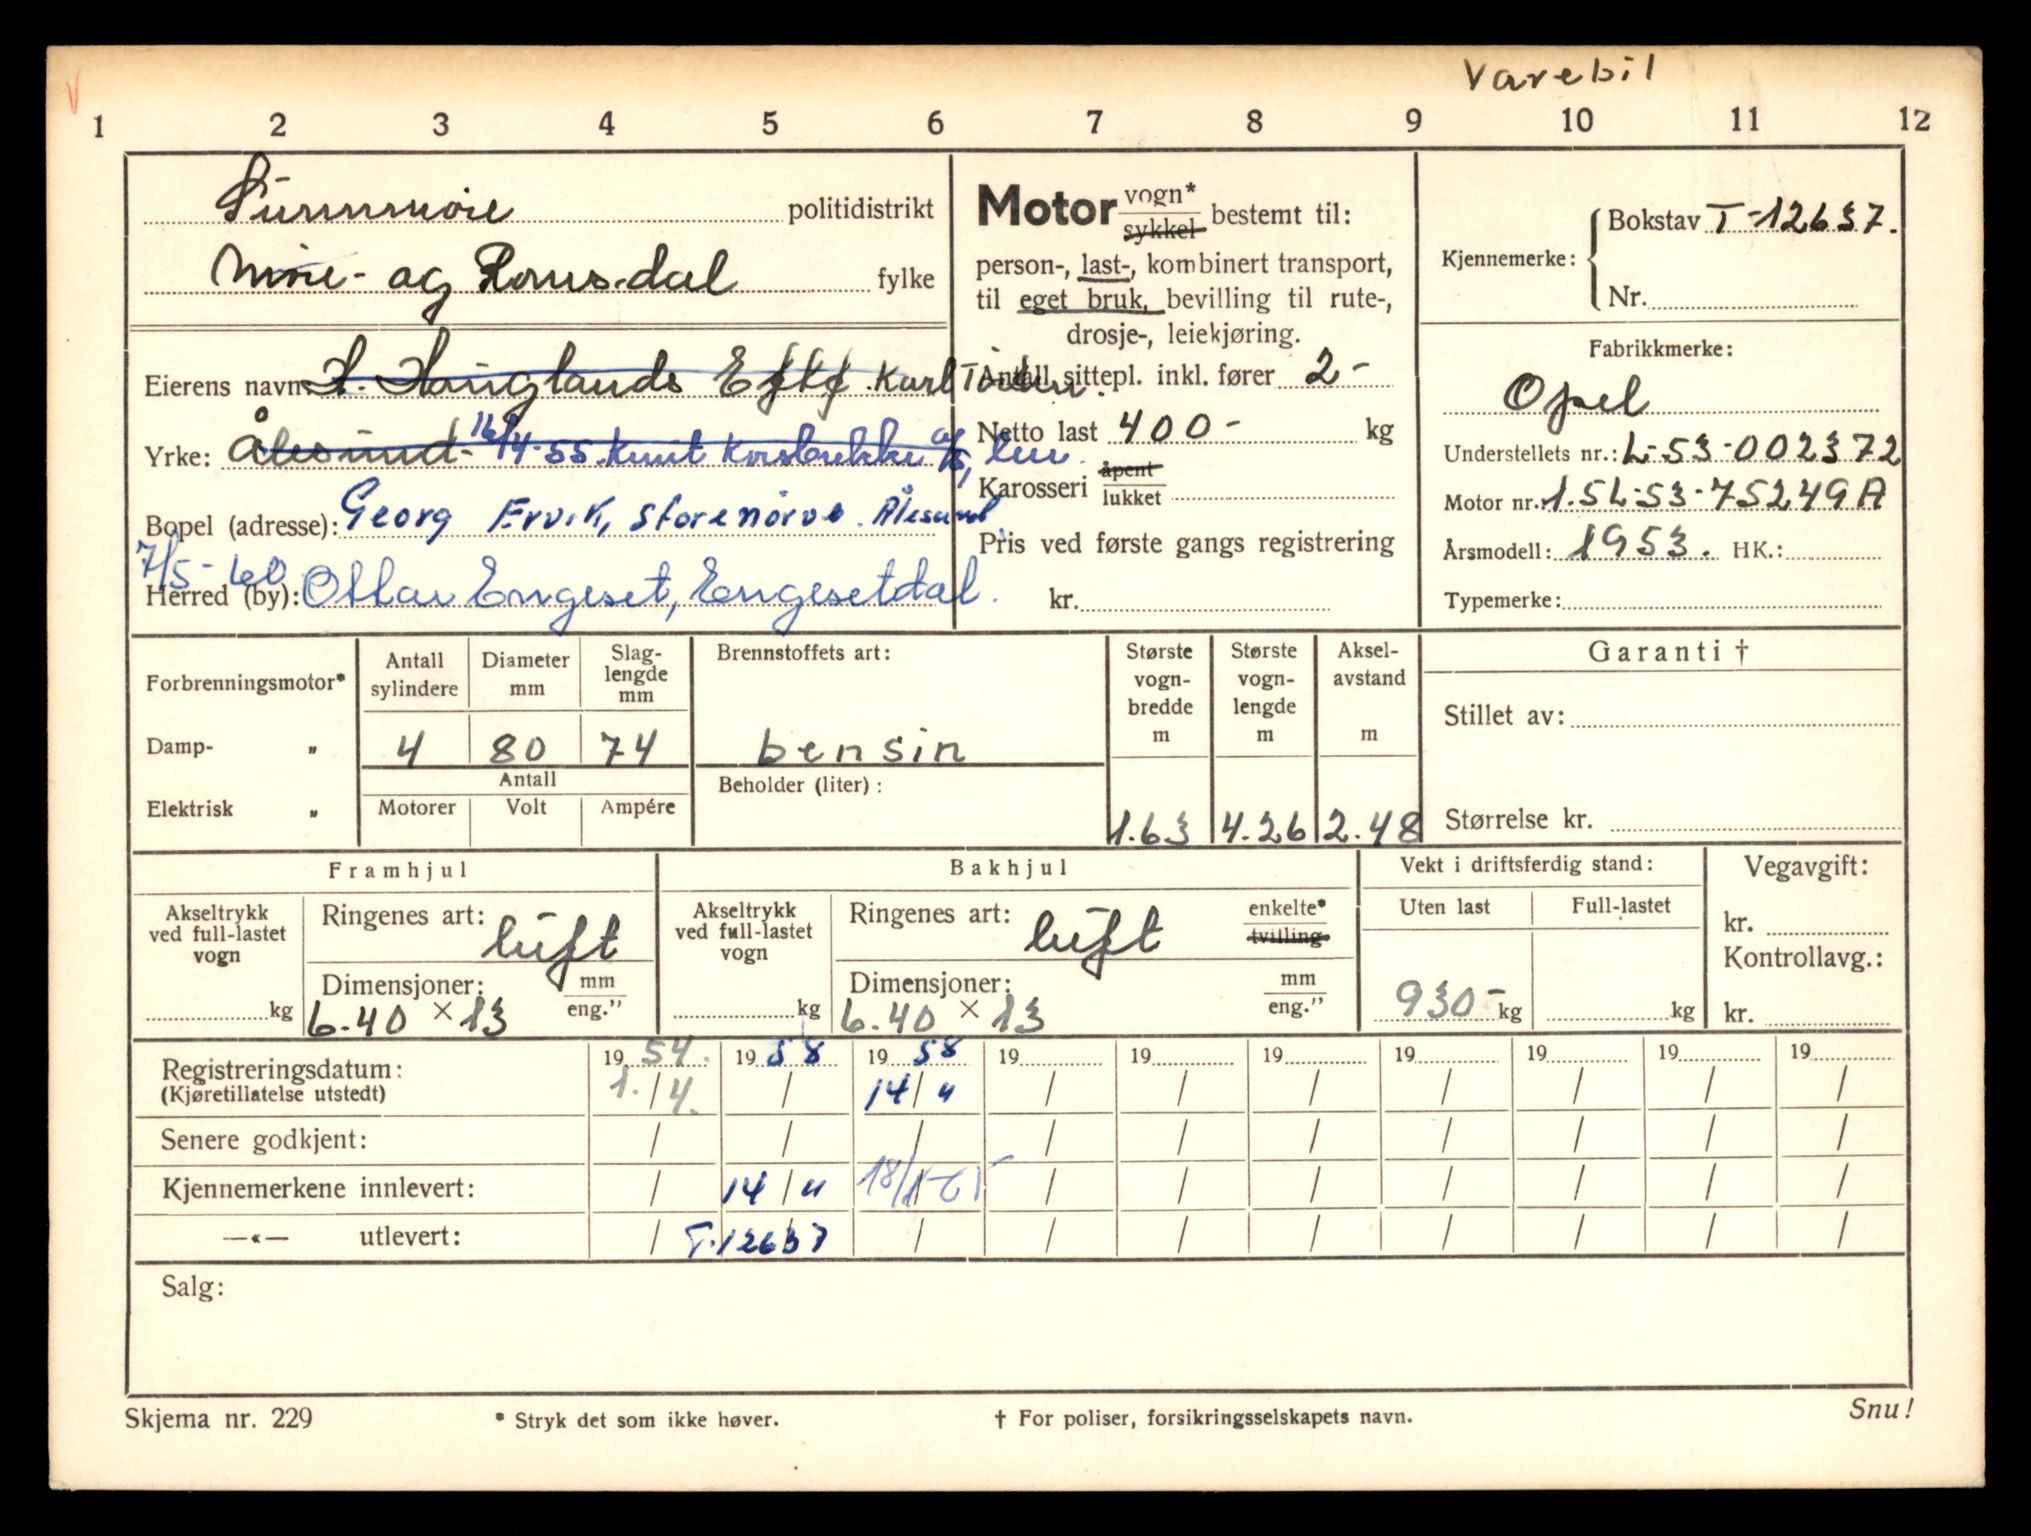 Varebil
1 2 3 4 5 6 7 8 9 10 11 12
Sunnmøre politidistrikt
Møre- og Romsdal fylke
Eierens navn: H. Hauglands Eftf Karl
Yrke: Ålesund. 16/4-55. Knut Korsbrekke
Bopel (adresse): Georg Ervik, Storenørve. Ålesund
7/5-60
Herred (by): Ottar Engeset, Engesetdal.
Motor vogn* sykkel bestemt til:
person-, last-, kombinert transport,
til eget bruk, bevilling til rute-,
drosje-, leiekjøring.
Antall sittepl. inkl. fører 2-
Netto last 400- kg
Karosseri åpent lukket
Pris ved første gangs registrering
kr.
Kjennemerke: Bokstav T-12637.
Nr.
Fabrikkmerke:
Opel
Understellets nr.: L-53-002372
Motor nr.: 1.5L-53-75249A
Årsmodell: 1953. HK.:
Typemerke:
Forbrenningsmotor*
Damp- "
Elektrisk "
Antall sylindere Diameter mm Slag-lengde mm
4 80 74
Antall
Motorer Volt Ampére
Brennstoffets art:
bensin
Beholder (liter):
Største vogn-bredde m Største vogn-lengde m Aksel-avstand m
1.63 4.26 2.48
Garanti †
Stillet av:
Størrelse kr.
Framhjul
Akseltrykk
ved full-lastet
vogn
kg
Ringenes art: luft
Dimensjoner: mm eng."
6.40 × 13
Bakhjul
Akseltrykk
ved full-lastet
vogn
kg
Ringenes art: luft enkelte* tvilling
Dimensjoner: mm eng."
6.40 × 13
Vekt i driftsferdig stand:
Uten last Full-lastet
930- kg kg
Vegavgift:
kr.
Kontrollavg.:
kr.
Registreringsdatum: 19 54. 19 58 19 58 19 19 19 19 19 19 19
(Kjøretillatelse utstedt) 1./4. / 14/11 / / / / / / /
Senere godkjent: / / / / / / / / / /
Kjennemerkene innlevert: / 14/11 18/1-65 / / / / / / /
—«— utlevert: / T-12637 / / / / / / / /
Salg:
Skjema nr. 229 * Stryk det som ikke høver. † For poliser, forsikringsselskapets navn. Snu!